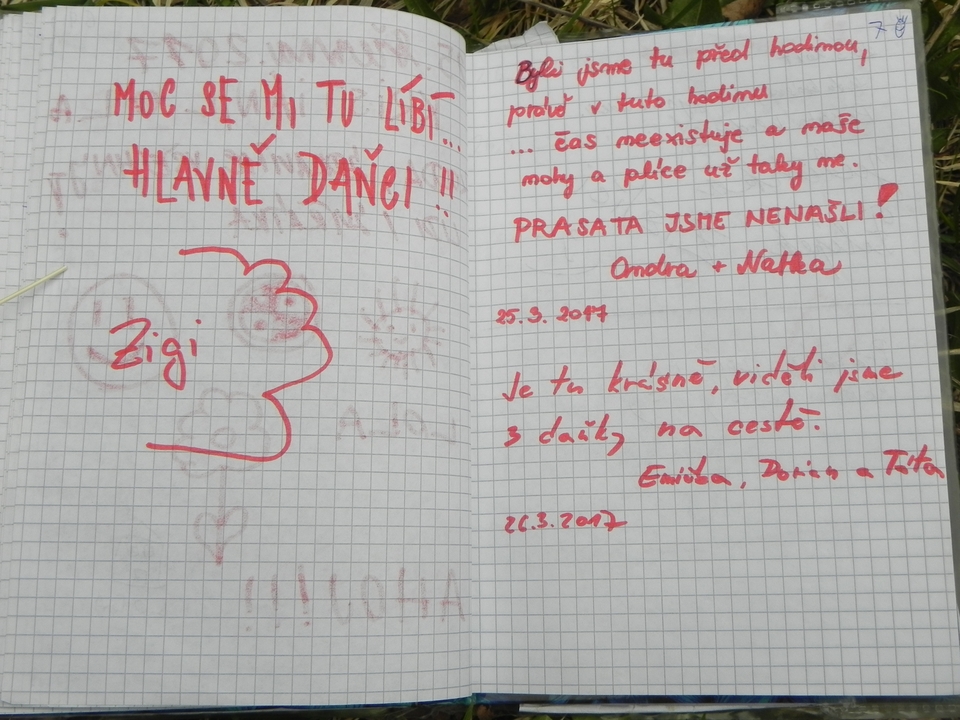 MOC SE MI TU LÍBÍ...
HLAVNĚ DAŇČI !!
Zigi
7
Byli jsme tu před hodinou,
právě v tuto hodinu
... čas neexistuje a naše
nohy a plíce už taky ne.
PRASATA JSME NENAŠLI!
Ondra + Naťka
25.3.2017
Je tu krásně, viděli jsme
3 daňky na cestě.
Emička, Dorian a Táta
26.3.2017
AHOJ!!!!